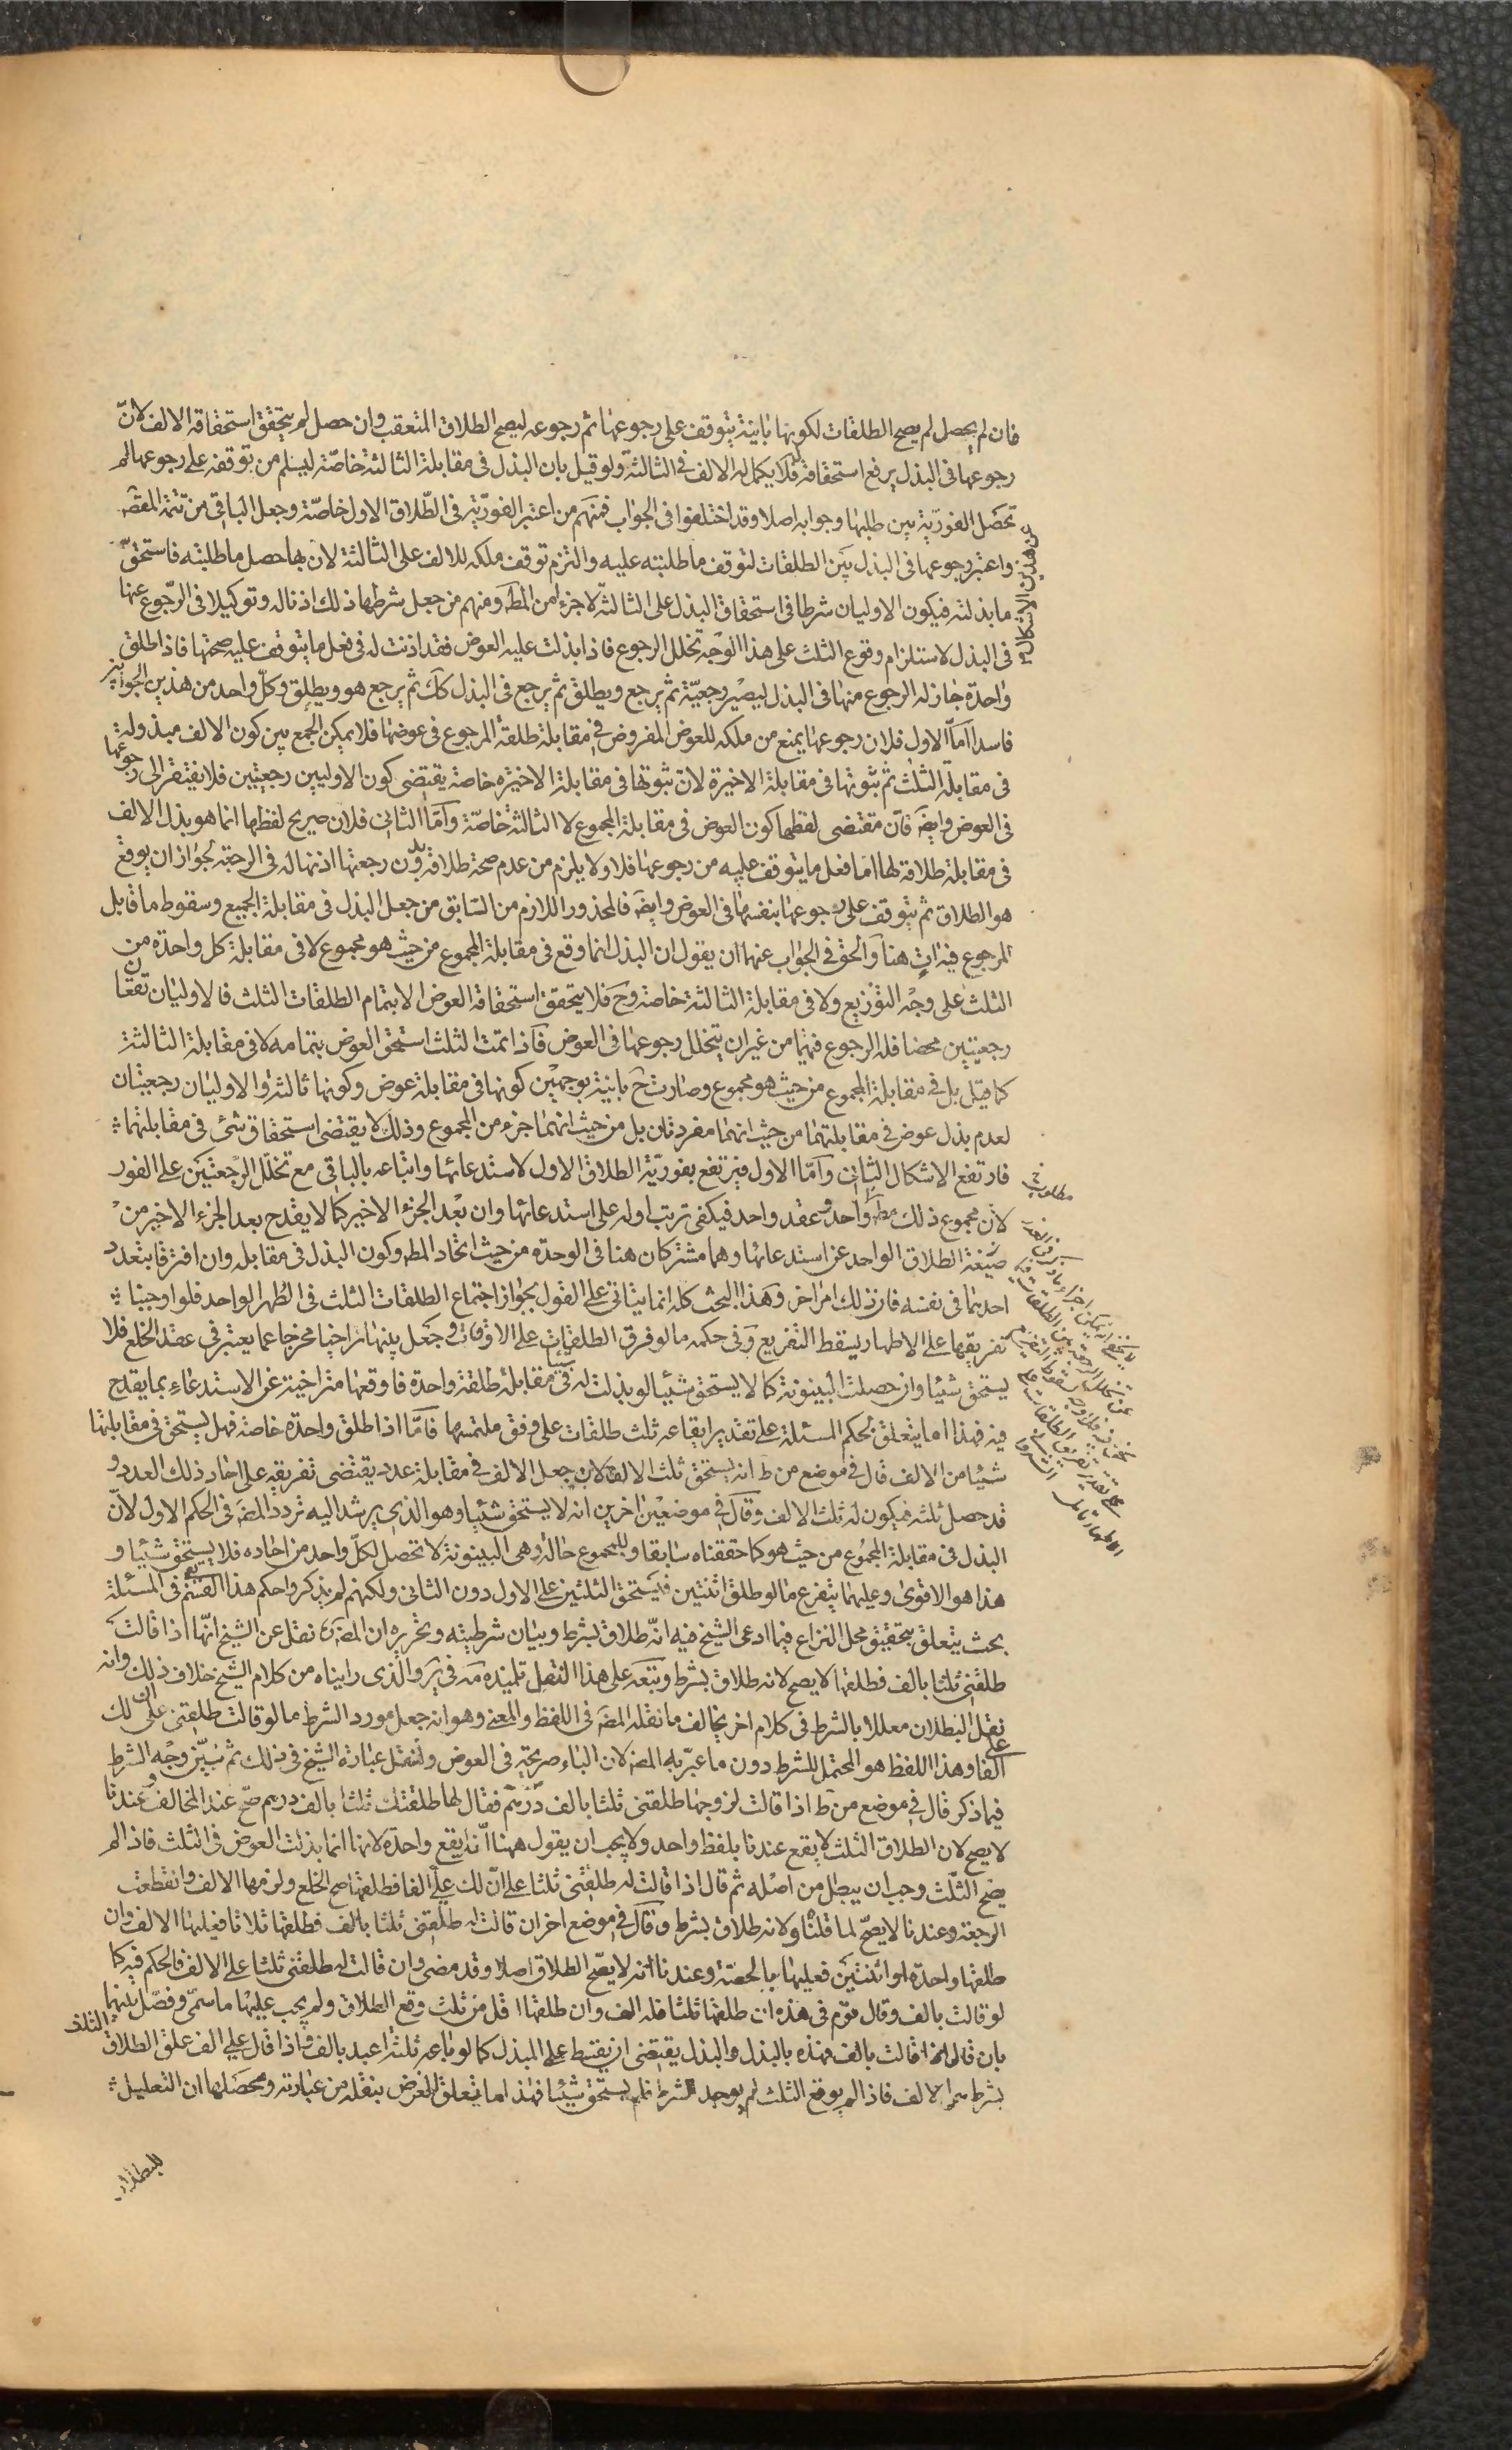 فان لم يحصل لم يصح الطلقات لكونها باينة يتوقف على رجوعها ثم رجوعه ليصح الطلاق المتعقب وان حصل لم يتحقق استحقاقه الالف لانّ
رجوعها فى البذل يرفع استحقاقه فلا يكمل له الالف فى الثالثة ولو قيل بان البذل فى مقابلة الثالثة خاصّة ليسلم من توقفه على رجوعها لم
تحصل الفوريّة بين طلبها وجوابه اصلا وقد اختلفوا فى الجواب فمنهم من اعتبر الفوريّة فى الطّلاق الاول خاصّة وجعل الباقى من تتمة المقتضـ
واعتبر رجوعها فى البذل بين الطلقات لتوقف ما طلبته عليه والتزم توقف ملكه للالف على الثالثة لان بها حصل ما طلبته فاستحقّ
ما بذلته فيكون الاوليان شرطا فى استحقاق البذل على الثالثة لا جزءا من المط ومنهم من جعل شرطها ذلك اذنا له وتوكيلا فى الرّجوع عنها
فى البذل لاستلزام وقوع الثلث على هذا الوجه تخلل الرجوع فاذا بذلت عليه العوض فقد اذنت له فى فعل ما يتوقف عليه صحتها فاذا طلق
واحدة جاز له الرجوع منها فى البذل ليصير رجعيّة ثم يرجع ويطلق ثم يرجع فى البذل كك ثم يرجع هو ويطلق وكلّ واحد من هذين الجوابين
فاسد امّا الاول فلان رجوعها يمنع من ملكه للعوض المفروض فى مقابلة طلقة المرجوع فى عوضها فلا يمكن الجمع بين كون الالف مبذولة
فى مقابلة الثلث ثم ثبوتها فى مقابلة الاخيرة لان ثبوتها فى مقابلة الاخيرة خاصة يقتضى كون الاوليين رجعيتين فلا يفتقر الى رجوعها
فى العوض وايضـ فان مقتضى لفظها كون العوض فى مقابلة المجموع لا الثالثة خاصّة وامّا الثانى فلان صريح لفظها انما هو بذل الالف
فى مقابلة طلاقه لها اما فعل ما يتوقف عليه من رجوعها فلا ولا يلزم من عدم صحة طلاقه بدون رجعتها اذنها له فى الرجعة لجواز ان يوقع
هو الطلاق ثم يتوقف على رجوعها بنفسها فى العوض وايضـ فالمحذور اللازم من السّابق من جعل البذل فى مقابلة الجميع وسقوط ما قابل
المرجوع فيه ات هنا والحق فى الجواب عنها ان يقول ان البذل انما وقع فى مقابلة المجموع من حيث هو مجموع لا فى مقابلة كل واحدة من
الثلث على وجه التوزيع ولا فى مقابلة الثالثة خاصة وح فلا يتحقق استحقاقه العوض الا بتمام الطلقات الثلث فالاوليان تقعان
رجعيتين محضا فله الرجوع فيهما من غير ان يتخلل رجوعها فى العوض فاذا تمت الثلث استحق العوض بتمامه لا فى مقابلة الثالثة
كما قيل بل فى مقابلة المجموع من حيث هو مجموع وصارت ح باينة بوجهين كونها فى مقابلة عوض وكونها ثالثة والاوليان رجعيتان
لعدم بذل عوض فى مقابلتهما من حيث انهما مفردتان بل من حيث انهما جزء من المجموع وذلك لا يقتضى استحقاق شئ فى مقابلتهما
فارتفع الاشكال الثانى وامّا الاول فيرتفع بفوريّة الطلاق الاول لاستدعائها واتباعه بالباقى مع تخلّل الرّجعتين على الفور
لان مجموع ذلك مط واحد وعقد واحد فيكفى ترتب اوله على استدعائها وان بعد الجزء الاخير كما لا يقدح بعد الجزء الاخير من
صيغة الطلاق الواحد عن استدعائها وهما مشتركان هنا فى الوحدة من حيث اتحاد المط وكون البذل فى مقابله وان افترقا بتعدد
احدهما فى نفسه فان ذلك امر اخر وهذا البحث كله انما يتاتى على القول بجواز اجتماع الطلقات الثلث فى الطّهر الواحد فلو اوجبنا
تفريقها على الاطهار يسقط التفريع وفى حكمه ما لو فرق الطلقات على الاوقات وجعل بينها تراخيا مخرجا عما يعتبر فى عقد الخلع فلا
يستحق شيئا وان حصلت البينونة كما لا يستحق شيئا لو بذلت له شيئا فى مقابلة طلقة واحدة فاوقعها متراخية عن الاستدعاء بما يقدح
فيه فهذا ما يتعلق بحكم المسئلة على تقدير ايقاعه ثلث طلقات على وفق ملتمسها فامّا اذا طلق واحدة خاصة فهل يستحق فى مقابلتها
شيئا من الالف قال فى موضع من ط انه يستحق ثلث الالف لان جعل الالف فى مقابلة عدد يقتضى تفريقه على احاد ذلك العدد و
قد حصل ثلثه فيكون له ثلث الالف وقال فى موضعين اخرين انه لا يستحق شيئا وهو الذى يرشد اليه تردد المصـ فى الحكم الاول لانّ
البذل فى مقابلة المجموع من حيث هو كما حققناه سابقا وللمجموع حالة وهى البينونة لا تحصل لكلّ واحد من احاده فلا يستحق شيئا و
هذا هو الاقوى وعليهما يتفرع ما لو طلق اثنتين فيستحق الثلثين على الاول دون الثانى ولكنهم لم يذكروا حكم هذا القسم فى المسئلة
بحث يتعلق بتحقيق محل النزاع فيما ادعى الشيخ فيه انّه طلاق بشرط وبيان شرطيته وتحريره ان المصـ نقل عن الشيخ انّها اذا قالت
طلقنى ثلثا بالف فطلقها لا يصح لانه طلاق بشرط وتبعه على هذا النقل تلميذه مه فى ير والذى رايناه من كلام الشيخ خلاف ذلك وانه
نقل البطلان معللا بالشرط فى كلام اخر يخالف ما نقله المصـ فى اللفظ والمعنى وهو انه جعل مورد الشرط ما لو قالت طلقنى على ان لك
على الفا وهذا اللفظ هو المحتمل للشرط دون ما عبّر به المصـ لان الباء صريحة فى العوض ولننقل عبارة الشيخ فى ذلك ثم نبيّن وجه الشرط
فيما ذكر قال فى موضع من ط اذا قالت لزوجها طلقنى ثلثا بالف درهم فقال لها طلقتك ثلثا بالف درهم صحّ عند المخالف وعندنا
لا يصح لان الطلاق الثلث لا يقع عندنا بلفظ واحد ولا يجب ان يقول ههنا انه يقع واحدة لانها انما بذلت العوض فى الثلث فاذا لم
يصح الثلث وجب ان يبطل من اصله ثم قال اذا قالت له طلقنى ثلثا على انّ لك علىّ الفا فطلقها صح الخلع ولزمها الالف وانقطعت
الرجعة وعندنا لا يصحّ لما قلناه ولانه طلاق بشرط وقال فى موضع اخر ان قالت له طلقنى ثلثا بالف فطلقها ثلاثا فعليها الالف وان
طلقها واحدة او اثنتين فعليها بالحصّة وعندنا انه لا يصّح الطلاق اصلا وقد مضى وان قالت له طلقنى ثلثا على الالف فالحكم فيه كما
لو قالت بالف وقال قوم فى هذه ان طلقها ثلثا فله الف وان طلقها اقل من ثلث وقع الطلاق ولم يجب عليها ما سمّى وفصّل بينهما
بان قال اذا قالت بالف فهذه بالبذل والبذل يقتضى ان يقسّط على المبذل كما لو باعه ثلثة اعبد بالف واذا قال على الف علق الطلاق الثلث
بشرط هو الالف فاذا لم يوقع الثلث لم يوجد الشرط فلم يستحق شيئا فهذا ما يتعلق الغرض بنقله من عبارته ومحصّلها ان التعليل
للبطلان
عن هذين الاشكالين
مطلوب